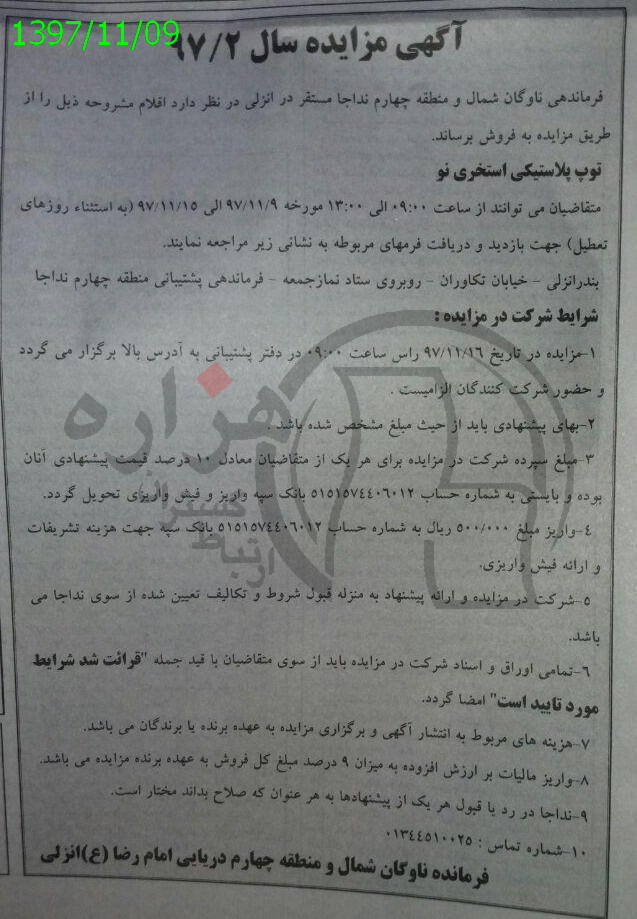 1397/11/09
آگهی مزایده سال ۹۷/۲
فرماندهی ناوگان شمال و منطقه چهارم نداجا مستقر در انزلی در نظر دارد اقلام مشروحه ذیل را از
طریق مزایده به فروش برساند.
توپ پلاستیکی استخری نو
متقاضیان می توانند از ساعت ۰۹:۰۰ الی ۱۳:۰۰ مورخه ۹۷/۱۱/۹ الی ۹۷/۱۱/۱۵ (به استثناء روزهای
تعطیل) جهت بازدید و دریافت فرمهای مربوطه به نشانی زیر مراجعه نمایند.
بندرانزلی - خیابان تکاوران - روبروی ستاد نمازجمعه - فرماندهی پشتیبانی منطقه چهارم نداجا
شرایط شرکت در مزایده :
۱-مزایده در تاریخ ۹۷/۱۱/۱۶ راس ساعت ۰۹:۰۰ در دفتر پشتیبانی به آدرس بالا برگزار می گردد
و حضور شرکت کنندگان الزامیست .
۲-بهای پیشنهادی باید از حیث مبلغ مشخص شده باشد .
۳-مبلغ سپرده شرکت در مزایده برای هر یک از متقاضیان معادل ۱۰ درصد قیمت پیشنهادی آنان
بوده و بایستی به شماره حساب ۵۱۵۱۵۷٤٤۰۶۰۱۲ بانک سپه واریز و فیش واریزی تحویل گردد.
٤-واریز مبلغ ۵۰۰/۰۰۰ ریال به شماره حساب ۵۱۵۱۵۷٤٤۰۶۰۱۲ بانک سپه جهت هزینه تشریفات
و ارائه فیش واریزی.
۵-شرکت در مزایده و ارائه پیشنهاد به منزله قبول شروط و تکالیف تعیین شده از سوی نداجا می
باشد.
۶-تمامی اوراق و اسناد شرکت در مزایده باید از سوی متقاضیان با قید جمله "قرائت شد شرایط
مورد تایید است" امضا گردد.
۷-هزینه های مربوط به انتشار آگهی و برگزاری مزایده به عهده برنده یا برندگان می باشد.
۸-واریز مالیات بر ارزش افزوده به میزان ۹ درصد مبلغ کل فروش به عهده برنده مزایده می باشد.
۹-نداجا در رد یا قبول هر یک از پیشنهادها به هر عنوان که صلاح بداند مختار است.
۱۰-شماره تماس : ۰۱۳٤٤۵۱۰۰۲۵
فرمانده ناوگان شمال و منطقه چهارم دریایی امام رضا (ع)انزلی
هزاره
گسترش
ارتباط